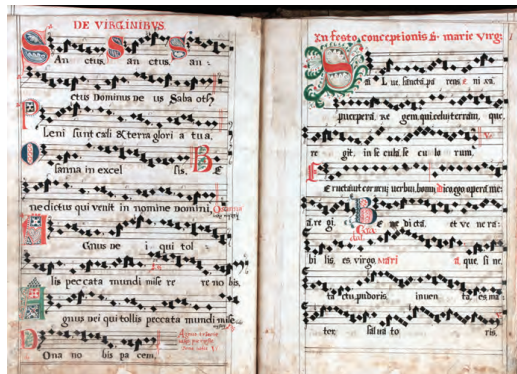 DE VIRGINIBUS.
SAn ctus. San ctus. San:
ctus Dominus De us Saba oth
Pleni sunt cæli & terra glori a tua,
Osanna in excel sis, BE
nedictus qui venit in nomine domini,
AGnus De i qui tol
lis peccata mundi mise re re no bis,
AGnus Dei qui tollis peccata mundi mise
DOna no bis pa cem,
In festo conceptionis B. marie Virg:
SAL ve, sancta, pa rens e ni xa
puerpera, re gem, qui, celu, terram, que,
re git, in se cula, se cu lo rum,
Eructavit cor meu, verbu, bonu, dico ego opera, me
a, re gi,
Grad
BE ne di cta, et ve ne ra:
bi lis, es, virgo, Mari a, que, si ne,
ta ctu, pudoris, inven ta, es, ma:
ter, salva to ris.